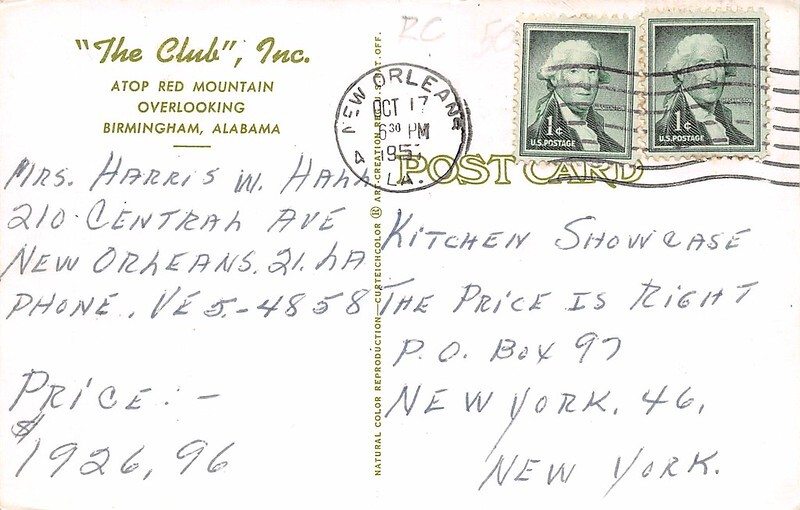 "The Club", Inc.
ATOP RED MOUNTAIN
OVERLOOKING
BIRMINGHAM, ALABAMA
MRS. HARRIS W. HALL
210 CENTRAL AVE
NEW ORLEANS. 21. LA
PHONE. VE 5-4858
PRICE:-
$1926,96
NATURAL COLOR REPRODUCTION—CURTEICHCOLOR ® ART-CREATION REG. U.S. PAT. OFF.
RC 50
NEW ORLEANS
OCT 17
6 30 PM
195
4 LA.
WASHINGTON
1¢
U.S. POSTAGE
WASHINGTON
1¢
U.S. POSTAGE
POST CARD
KITCHEN SHOWCASE
THE PRICE IS RIGHT
P.O. BOX 97
NEW YORK. 46,
NEW YORK.